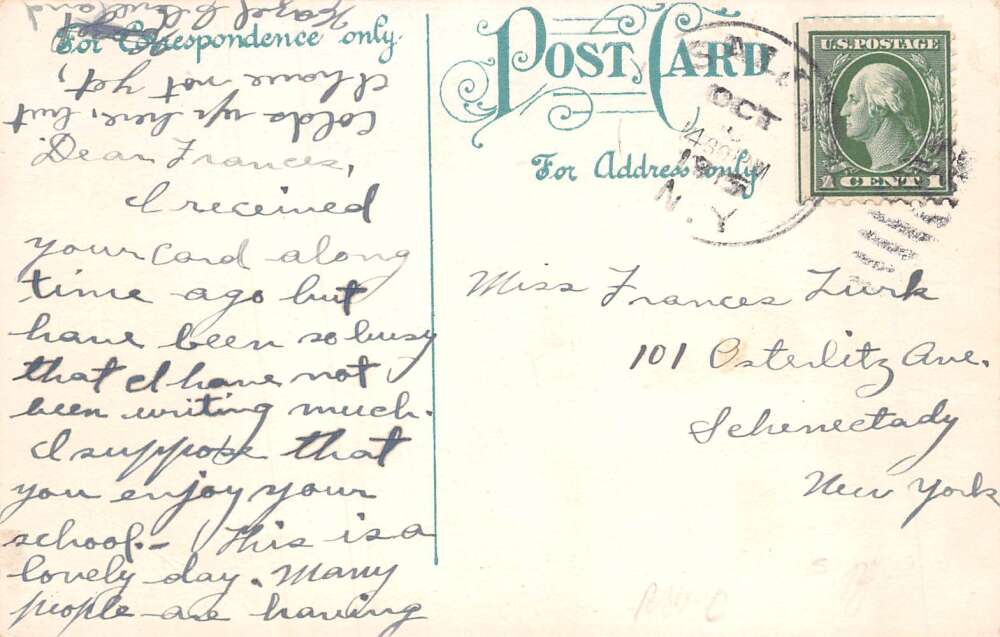 POST CARD
For Correspondence only.
For Address only
U.S. POSTAGE
1 CENT 1
OCT
1915
N.Y.
Dear Frances,
I received
your card along
time ago but
have been so busy
that I have not
been writing much.
I suppose that
you enjoy your
school.- This is a
lovely day. Many
people are having
colds up here, but
I have not yet,
Hazel Cleveland
Miss Frances Turk
101 Osterlitz Ave.
Schenectady
New York